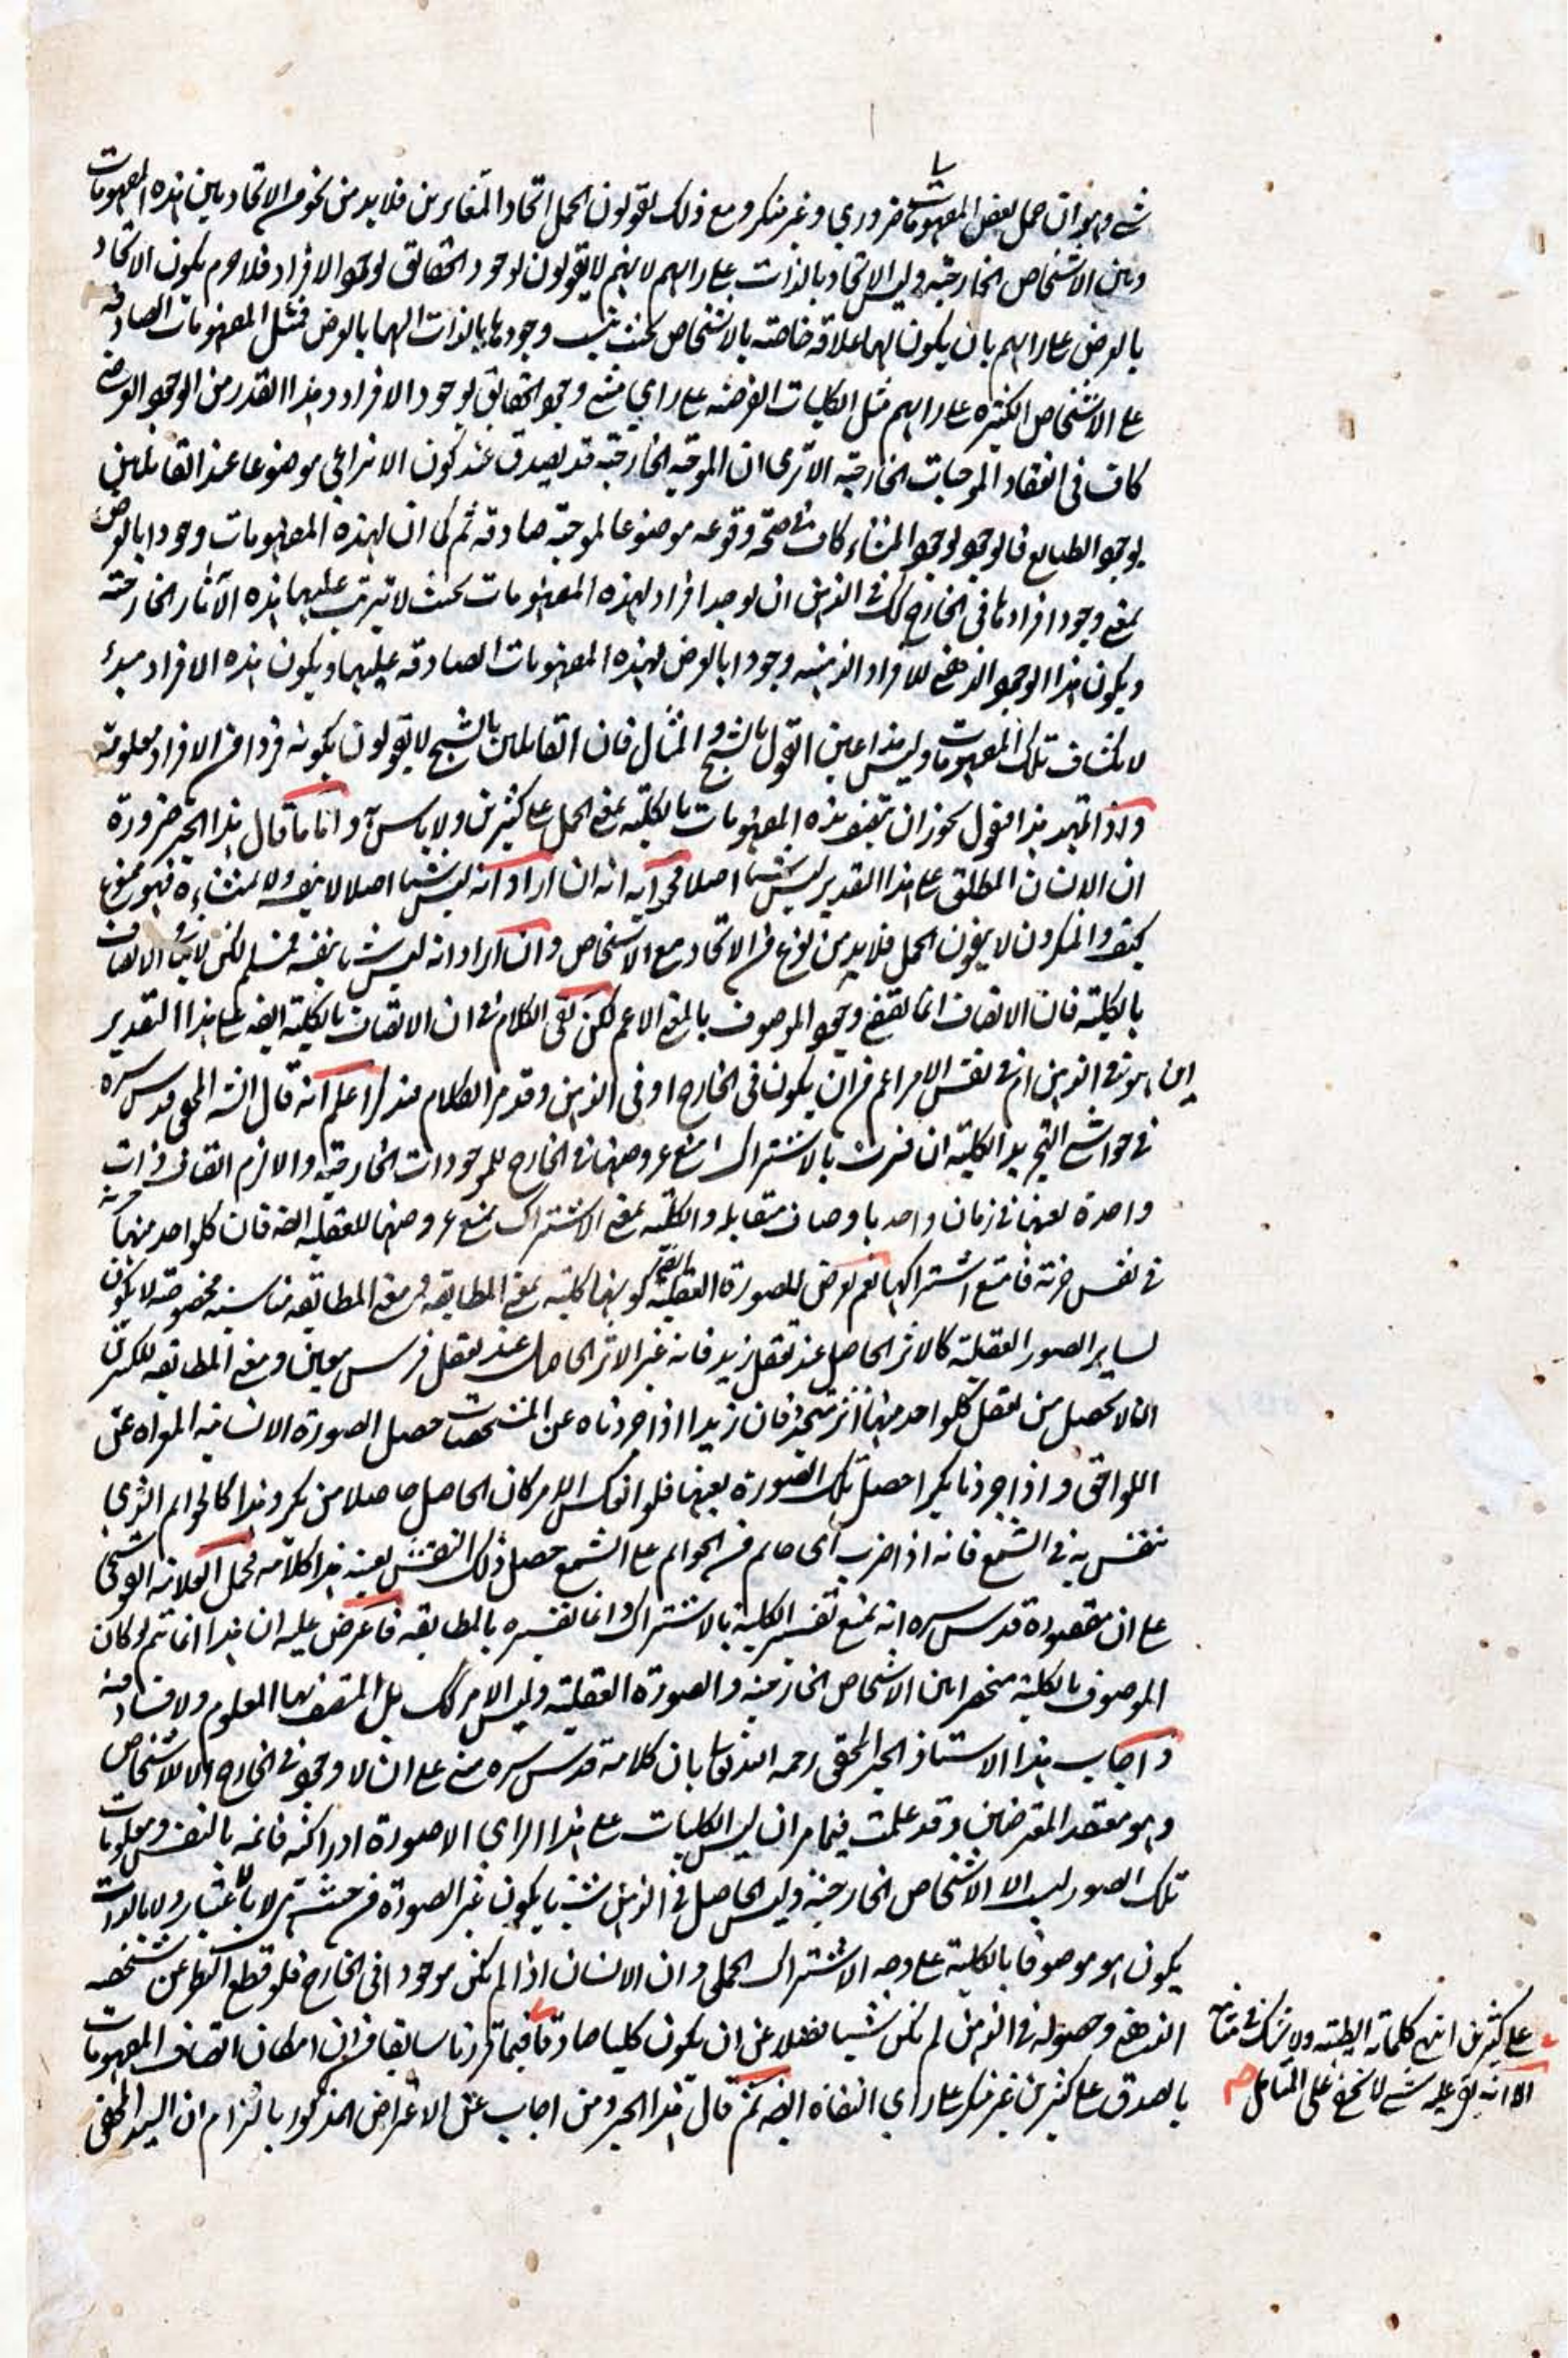 شے وهو ان حمل بعض المفهومات ضروري وغير منكر ومع ذلك يقولون الحمل اتحاد المتغايرين فلا بد من نحو من الاتحاد بين هذه المفهومات
وبين الاشخاص الخارجية وليس الاتحاد بالذات على رايهم لانهم لا يقولون بوجود الحقائق بوجود الافراد فلا جرم يكون الاتحاد
بالعرض على رايهم بان يكون لها علاقة خاصة بالاشخاص بحيث ينسب وجودها بالذات اليها بالعرض فمثل المفهومات الصادقة
على الاشخاص الكثيرة على رايهم مثل الكليات العرضية على راي مثبتي وجود الحقائق بوجود الافراد وهذا القدر من الوجود العرضي
كاف في انعقاد الموجبات الخارجية الا ترى ان الموجبة الخارجية قد يصدق عند كون الانتزاعي موضوعا عند القائلين
بوجود الطبايع فالوجود بوجود المنشاء كاف في صحة وقوعه موضوعا لموجبة صادقة ثم كما ان لهذه المفهومات وجودا بالعرض
بمعنى وجود افرادها في الخارج كك في الذهن ان يوجد افراد لهذه المفهومات بحيث لا تترتب عليها هذه الآثار الخارجية
ويكون هذا الوجود الذهني للافراد الذهنية وجودا بالعرض لهذه المفهومات الصادقة عليها ويكون هذه الافراد مبدء
لانكشاف تلك المفهومات وليس هذا عين القول بالشبح والمثال فان القائلين بالشبح لا يقولون بكونه فردا من الافراد معلومة
واذا تمهد هذا فنقول يجوز ان يتصف هذه المفهومات بالكلية بمعنى الحمل على كثيرين ولا باس به واما ما قال هذا الحبر ضرورة
ان الانسان المطلق على هذا التقدير ليس شيئا اصلا فجوابه انه ان اراد انه ليس شيئا اصلا لا بنفسه ولا بمنشاءه فهو ممنوع
كيف والمنكرون لا ينفون الحمل فلا بد من نوع من الاتحاد مع الاشخاص وان اراد انه ليس شيئا بنفسه فمسلم لكن لا ينافي الاتصاف
بالكلية فان الاتصاف انما يقتضي وجود الموصوف بالمعنى الاعم لكن بقي الكلام في ان الاتصاف بالكلية ايضه على هذا التقدير
اين هو في الذهن ام في نفس الامر اعم من ان يكون في الخارج او في الذهن وقد مر الكلام فتذكر اعلم انه قال السيد المحقق قدس سره
في حواشي التجريد الكلية ان فسرت بالاشتراك امتنع عروضها في الخارج للموجودات الخارجية والا لزم اتصاف ذات
واحدة بعينها في زمان واحد باوصاف متقابلة والكلية بمعنى الاشتراك يمتنع عروضها للعقلية ايضه فان كل واحد منها صورة
في نفس جزئية فامتنع اشتراكها نعم يعرض للصورة العقلية كونها كلية بمعنى المطابقة ومعنى المطابقة مناسبة مخصوصة لا يكون
لساير الصور العقلية كالاثر الحاصل عند تعقل زيد فانه غير الاثر الحاصل عند تعقل فرس معين ومعنى المطابقة للكثيرين
ان لا يحصل من تعقل كل واحد منها اثر متجدد فان زيدا اذا جردناه عن المشخصات حصل الصورة الانسانية المعراة عن
اللواحق واذا جردنا بكرا حصل تلك الصورة بعينها فلو انعكس الامر كان الحاصل حاصلا من بكر وهذا كالخواتم التي
ينتقش به في الشمع فانه اذا ضرب اي خاتم من الخواتم على الشمع حصل ذلك النقش بعينه هذا كلامه فحمل العلامة القوشجي
على ان مقصوده قدس سره انه يمنع تفسير الكلية بالاشتراك وانما تفسيره بالمطابقة فاعترض عليه ان هذا انما تم لو كان
الموصوف بالكلية منحصرا بين الاشخاص الخارجية والصورة العقلية وليس الامر كك بل المتصف بها المعلوم ولا فساد فيه
واجاب هذا الاستاذ الحبر المحقق رحمه الله تعالى بان كلامه قدس سره مبني على ان لا وجود في الخارج الا للاشخاص
وهو معتقد المعترضين وقد علمت فيما مر ان ليس الكليات على هذا الراي الا صورة ادراكية قائمة بالنفس ومعلومات
تلك الصور ليس الا الاشخاص الخارجية وليس الحاصل في الذهن شيئا يكون غير الصورة من حيث هي لا بالاعتبار ولا بالذات
يكون هو موصوفا بالكلية على وجه الاشتراك الحملي وان الانسان اذا لم يكن موجودا في الخارج فلو قطع النظر عن تشخصه
الذهني وحصوله في الذهن لم يكن شيئا فضلا عن ان يكون كليا صادقا فيما قررنا سابقا من ان امكان اتصاف المفهومات
بالصدق على كثيرين غير منكر على راي النفاة ايضه ثم قال هذا الحبر ومن اجاب عن الاعتراض المذكور بالتزام ان السيد المحقق
على كثيرين انتهى كلماته الطيبة ولا شك في متانته
الا انه بقي عليه شے لا يخفى على المتامل